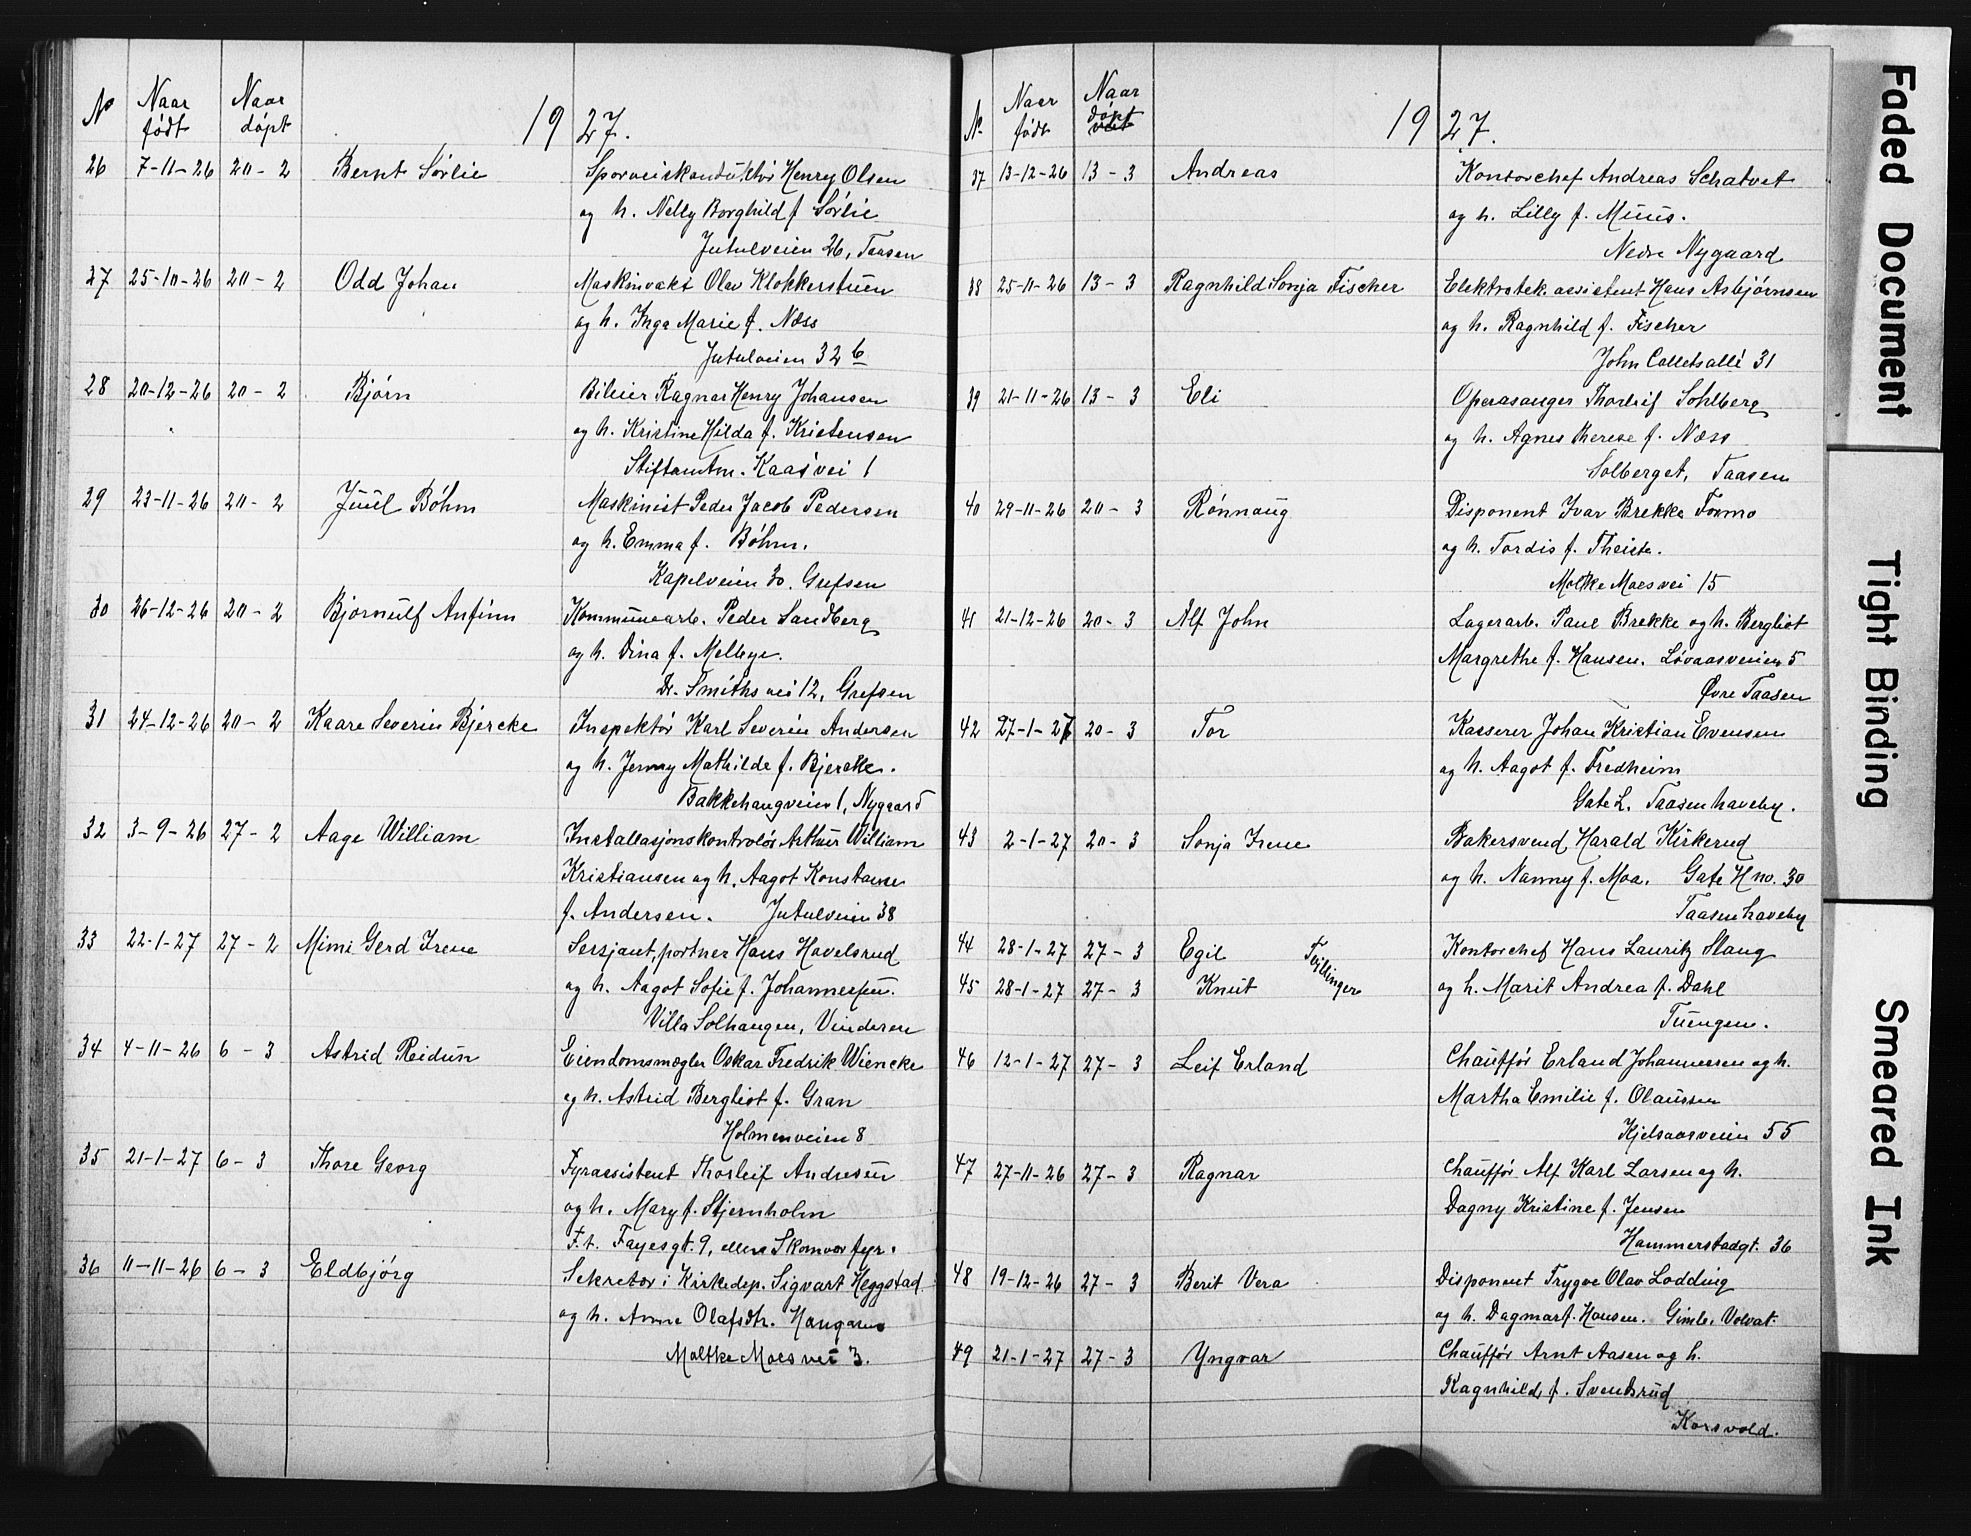 No Naar født Naar døpt 1927.
26 7-11-26 20-2 Bernt Sørlie Sporveiskonduktør Henry Olsen
og h. Nelly Borghild f Sørlie
Jutulveien 26, Taasen
27 25-10-26 20-2 Odd Johan Maskinvakt Olav Klokkerstuen
og h. Inga Marie f. Næss
Jutulveien 32 b
28 20-12-26 20-2 Bjørn Bileier Ragnar Henry Johansen
og h. Kristine Hilda f. Kristensen
Stiftamtm. Kaas' vei 1
29 23-11-26 20-2 Juul Bøhm Maskinist Peder Jacob Pedersen
og h. Emma f. Bøhm.
Kapelveien 30. Grefsen
30 26-12-26 20-2 Bjørnulf Anfinn Kommunearb. Peder Sandberg
og h. Dina f. Melbye.
Dr. Smiths vei 12, Grefsen
31 24-12-26 20-2 Kaare Severin Bjercke Inspektør Karl Severin Andersen
og h. Jenny Mathilde f. Bjercke.
Bakkehaugveien 1, Nygaard
32 3-9-26 27-2 Aage William Installasjonskontrolør Arthur William
Kristiansen og h. Aagot Konstanse
f. Andersen. Jutulveien 38
33 22-1-27 27-2 Mimi Gerd Irene Sersjant, portner Hans Havelsrud
og h. Aagot Sofie f. Johannessen.
Villa Solhaugen, Vinderen
34 4-11-26 6-3 Astrid Reidun Eiendomsmægler Oskar Fredrik Wiencke
og h. Astrid Bergliot f. Gran
Holmenveien 8
35 21-1-27 6-3 Thore Georg Fyrassistent Thorleif Andresen
og h. Mary f. Stjernholm
F.t. Fayesgt. 9, ellers Skomvær fyr.
36 11-11-26 6-3 Eldbjørg Sekretær i Kirkedep. Sigvart Heggstad
og h. Anna Olafsdtr.
Moltke Moes vei 3.
No Naar født Naar døpt 1927.
37 13-12-26 13-3 Andreas Kontorchef Andreas Schatvet
og h. Lilly f. Muus.
Nedre Nygaard
38 25-11-26 13-3 Ragnhild Sonja Fischer Elektrotek. assistent Hans Asbjørnsen
og h. Ragnhild f. Fischer
John Colletsallé 31
39 21-11-26 13-3 Eli Operasanger Thorleif Sohlberg
og h. Agnes Therese f. Næss
Solberget, Taasen
40 29-11-26 20-3 Rønnaug Disponent Ivar Brekke Formo
og h. Tordis f. Theiste.
Moltke Moes vei 15
41 21-12-26 20-3 Alf John Lagerarb. Paul Brekke og h. Bergliot
Margrethe f. Hansen. Løvaasveien 5
Øvre Taasen
42 27-1-27 20-3 Tor Kasserer Johan Kristian Evensen
og h. Aagot f. Fredheim
Gate L. Taasen haveby.
43 2-1-27 20-3 Sonja Irene Bakersvend Harald Kirkerud
og h. Nanny f. Moa. Gate H no. 30
Taasen haveby
44 28-1-27 27-3 Egil Tvillinger Kontorchef Hans Lauritz Slang
45 28-1-27 27-3 Knut og h. Marit Andrea f. Dahl
Tuengen.
46 12-1-27 27-3 Leif Erland Chauffør Erland Johannessen og h.
Martha Emilie f. Olaussen
Kjelsaasveien 55
47 27-11-26 27-3 Ragnar Chauffør Alf Karl Larsen og h.
Dagny Kristine f. Jensen
Hammerstadgt. 36
48 19-12-26 27-3 Berit Vera Disponent Trygve Olav Lodding
og h. Dagmar f. Hansen. Gimle, Volvat.
49 21-1-27 27-3 Yngvar Chauffør Arnt Aasen og h.
Ragnhild f. Svendsrud
Korsvold.
Faded Document
Tight Binding
Smeared Ink